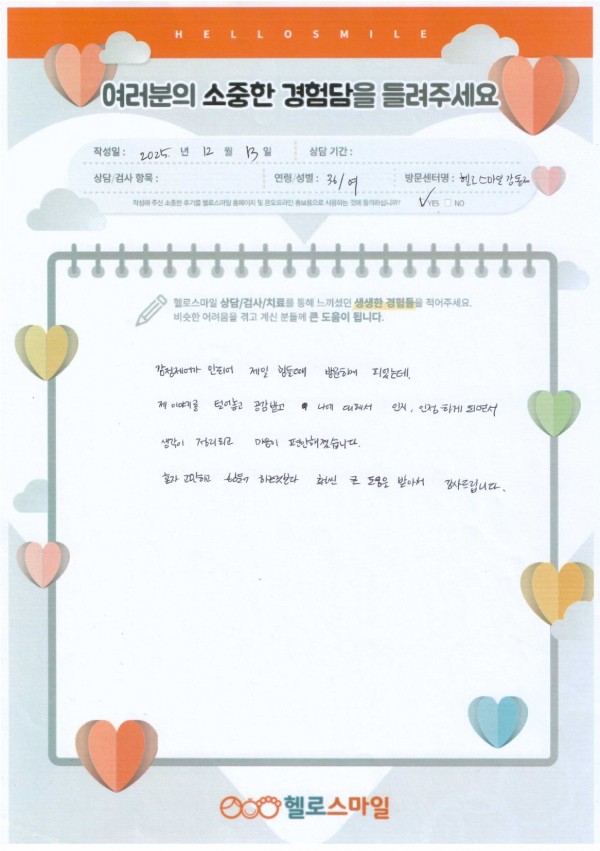 HELLOSMILE
여러분의 소중한 경험담을 들려주세요
작성일 : 2025. 년 12 월 13 일 상담 기간 :
상담/검사 항목 : 연령/성별 : 36/여 방문센터명 : 헬로스마일 강동
작성해 주신 소중한 후기를 헬로스마일 홈페이지 및 온오프라인 홍보용으로 사용하는 것에 동의하십니까? ✓YES □ NO
헬로스마일 상담/검사/치료를 통해 느끼셨던 생생한 경험들을 적어주세요.
비슷한 어려움을 겪고 계신 분들께 큰 도움이 됩니다.
감정제어가 안되어 제일 힘들때 방문하게 되었는데,
제 이야기를 털어놓고 공감받고 나에 대해서 인지, 인정하게 되면서
생각이 정리되고 마음이 편안해졌습니다.
혼자 고민하고 힘들어 하는것보다 훨씬 큰 도움을 받아서 감사드립니다.
헬로스마일